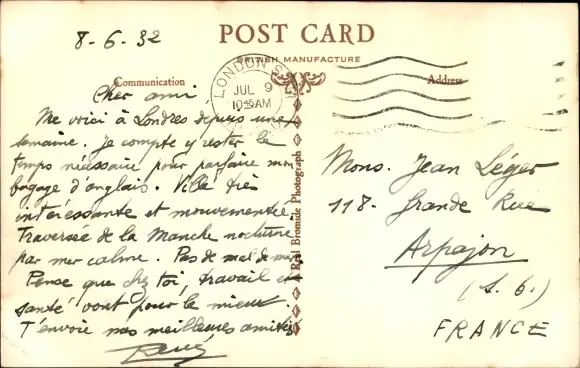 8-6-32
POST CARD
BRITISH MANUFACTURE
Communication
Address
LONDON
JUL 9
10 AM
Cher ami
Me voici à Londres depuis une
semaine. Je compte y rester le
temps nécessaire pour parfaire mon
bagage d'anglais. Ville très
intéressante et mouvementée.
Traversée de la Manche nocturne
par mer calme. Pas de mal de mer
Pense que chez toi, travail et
santé vont pour le mieux.
T'envoie mes meilleures amitiés
René
A Real Bromide Photograph
Mons. Jean Léger
118. Grande Rue
Arpajon
(S. O.)
FRANCE